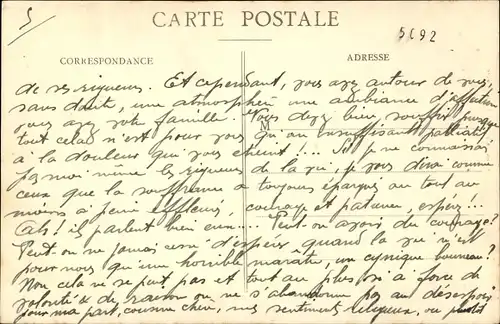 5
CARTE POSTALE
5C92
CORRESPONDANCE
ADRESSE
M
de ses rigueurs. Et cependant, vous avez autour de vous,
sans doute, une atmosphère, une ambiance d'affection
vous avez votre famille. Vous devez bien souffrir puisque
tout cela n'est pour vous qu'un insuffisant palliatif
à la douleur qui vous étreint !... Si je ne connaissais
pas moi-même les rigueurs de la vie, je vous dirai comme
ceux que la souffrance a toujours épargnés ou tout au
moins à peine effleurés, courage et patience, espérez !..
Ah ! ils parlent bien eux... Peut-on avoir du courage?
Peut-on ne jamais cesser d'espérer, quand la vie n'est
pour nous qu'une horrible marâtre, un cynique bourreau?
Non cela ne se peut pas et tout au plus si à force de
volonté & de raison on ne s'abandonne pas au désespoir
pour ma part, comme chez, mes sentiments religieux, ou plutôt